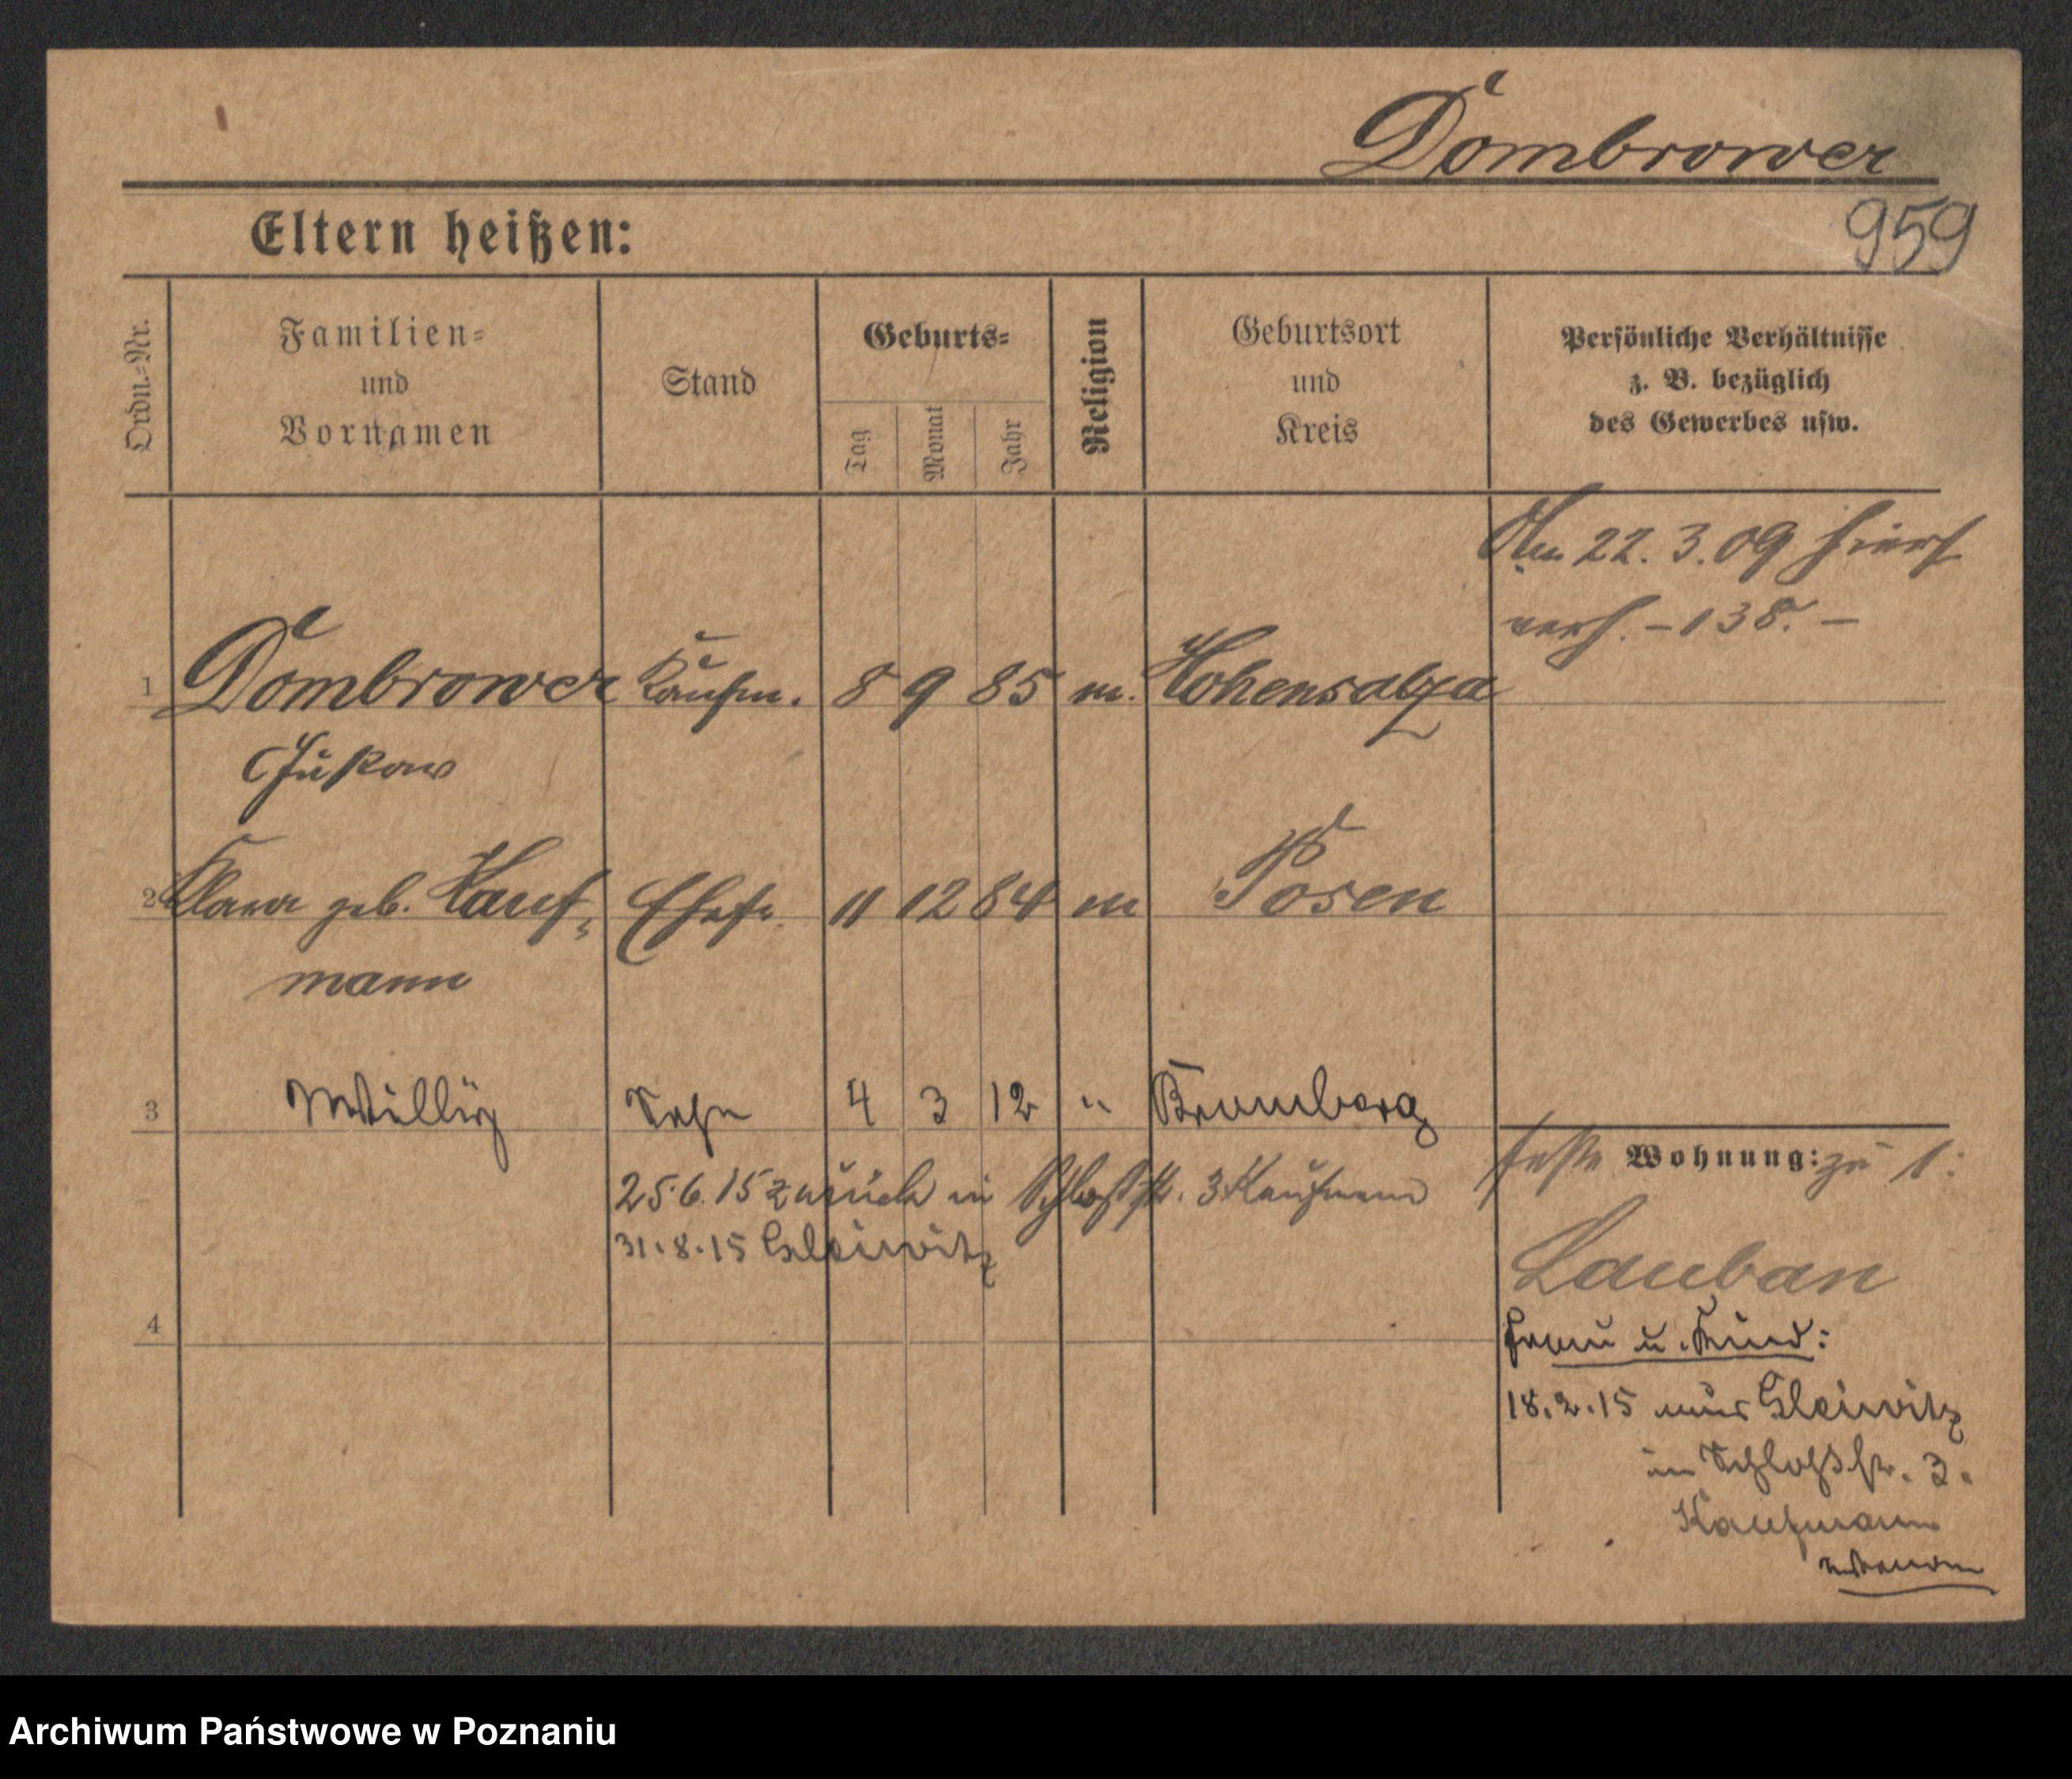 Dombrower
959
Eltern heißen:
Ordn.=Nr.
Familien=
und
Vornamen
Stand
Geburts=
Tag
Monat
Jahr
Religion
Geburtsort
und
Kreis
Persönliche Verhältnisse
z. B. bezüglich
des Gewerbes usw.
Am 22. 3. 09 hiers.
verh. - 138. -
1 Dombrower Kaufm. 8 9 85 m. Hohensalza
2 Klara geb. Kauf= Ehefr. 11 12 84 m Posen
mann
3 Willy Sohn 4 3 12 " Bromberg
feste Wohnung: zu 1:
25.6.15 zurück in Schloßstr. 3 Kaufmann
31.8.15 Gleiwitz
Lauban
4
Frau u. Kind:
18.2.15 aus Gleiwitz
in Schloßstr. 3.
Kaufmann
Archiwum Państwowe w Poznaniu